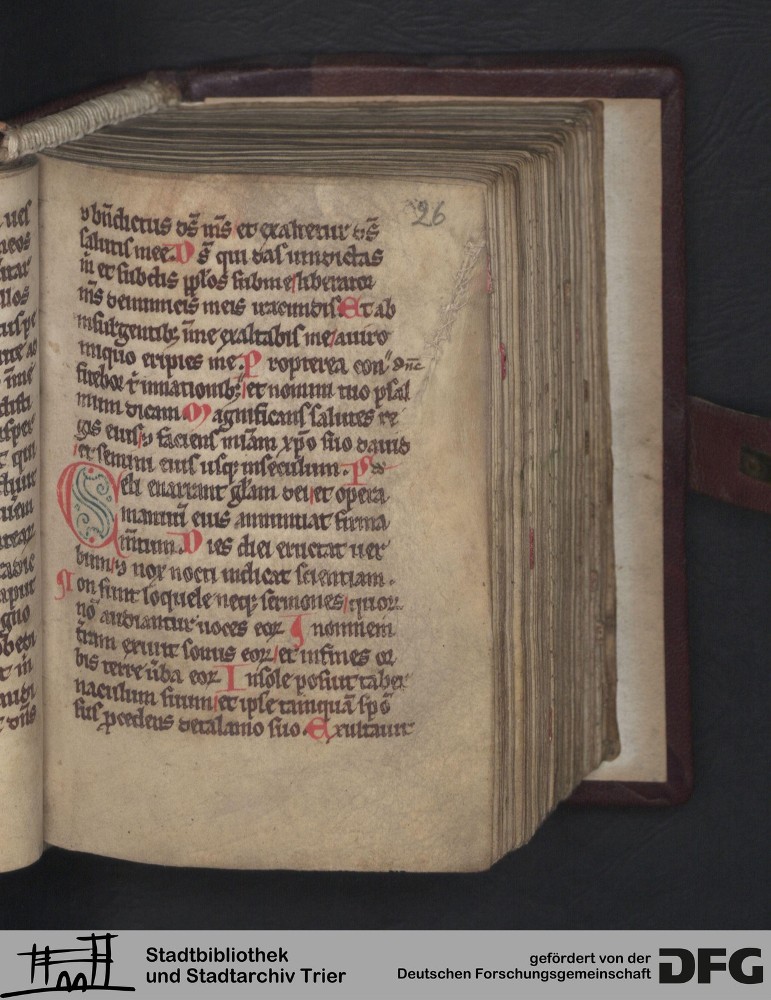 26
v bn̄dictus ds̄ ms̄ et exaltetur ds̄
salutis mee. D s̄ qui das uindictas
m̄ et subdis pplos sub me / liberator
ms̄ de inimicis meis iracundis. Et ab
insurgentibȝ in me exaltabis me / a uiro
iniquo eripies me. P ropterea con
dn̄e
fitebor t̄ i nationibȝ / et nomini tuo psal
mum dicam. M agnificans salutes re
gis eius / v faciens mīam xp̄o suo dauid
/ et semini eius usqȝ in seculum. Ps
Celi enarrant gl̄am dei / et opera
manuū eius annuntiat firma
m̄tum. D ies diei eructat uer
bum / v nox nocti indicat scientiam.
N on sunt loquele neqȝ sermones / quorꝝ
nō audiantur uoces eorꝝ I n omnem
t̄ram exiuit sonus eorꝝ / et in fines or
bis terre ūba eorꝝ I n sole posuit taber
naculum suum / et ipse tamquā spō
sus pcedens de talamo suo. Exultauit
Stadtbibliothek
und Stadtarchiv Trier
gefördert von der
Deutschen Forschungsgemeinschaft
DFG